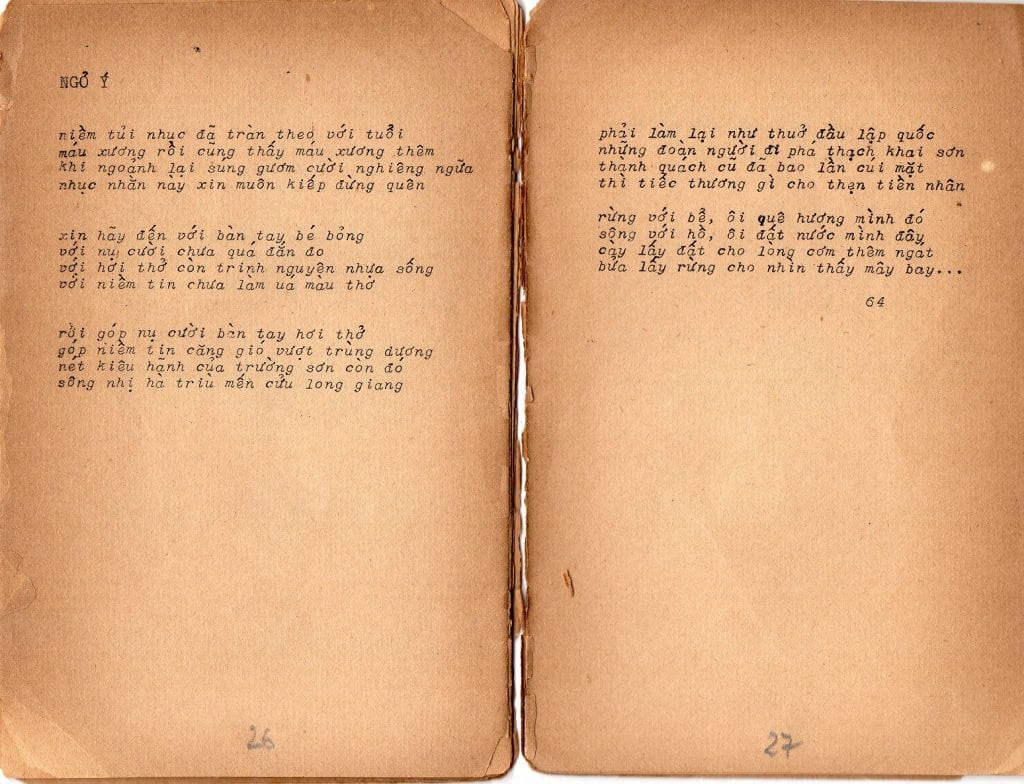 NGỎ Ý
niềm tủi nhục đã tràn theo với tuổi
máu xương rồi cũng thấy máu xương thêm
khi ngoảnh lại sung gươm cười nghiêng ngữa
nhục nhằn nay xin muôn kiếp đừng quên
xin hãy đến với bàn tay bé bỏng
với nụ cười chưa quá đắn đo
với hơi thở còn trinh nguyên nhựa sống
với niềm tin chưa làm uá màu thơ
rồi góp nụ cười bàn tay hơi thở
góp niềm tin căng gió vượt trùng dương
nét kiêu hãnh của trường sơn còn đó
sông nhị hà triù mến cửu long giang
26
phải làm lại như thuở đầu lập quốc
những đoàn người đi phá thạch khai sơn
thành quách cũ đã bao lần cuí mặt
thì tiếc thương gì cho thẹn tiền nhân
rừng với bể, ôi quê hương mình đó
sông với hồ, ôi đất nước mình đây
cày lấy đất cho long cơm thêm ngat
bửa lấy rừng cho nhìn thấy mây bay...
64
27